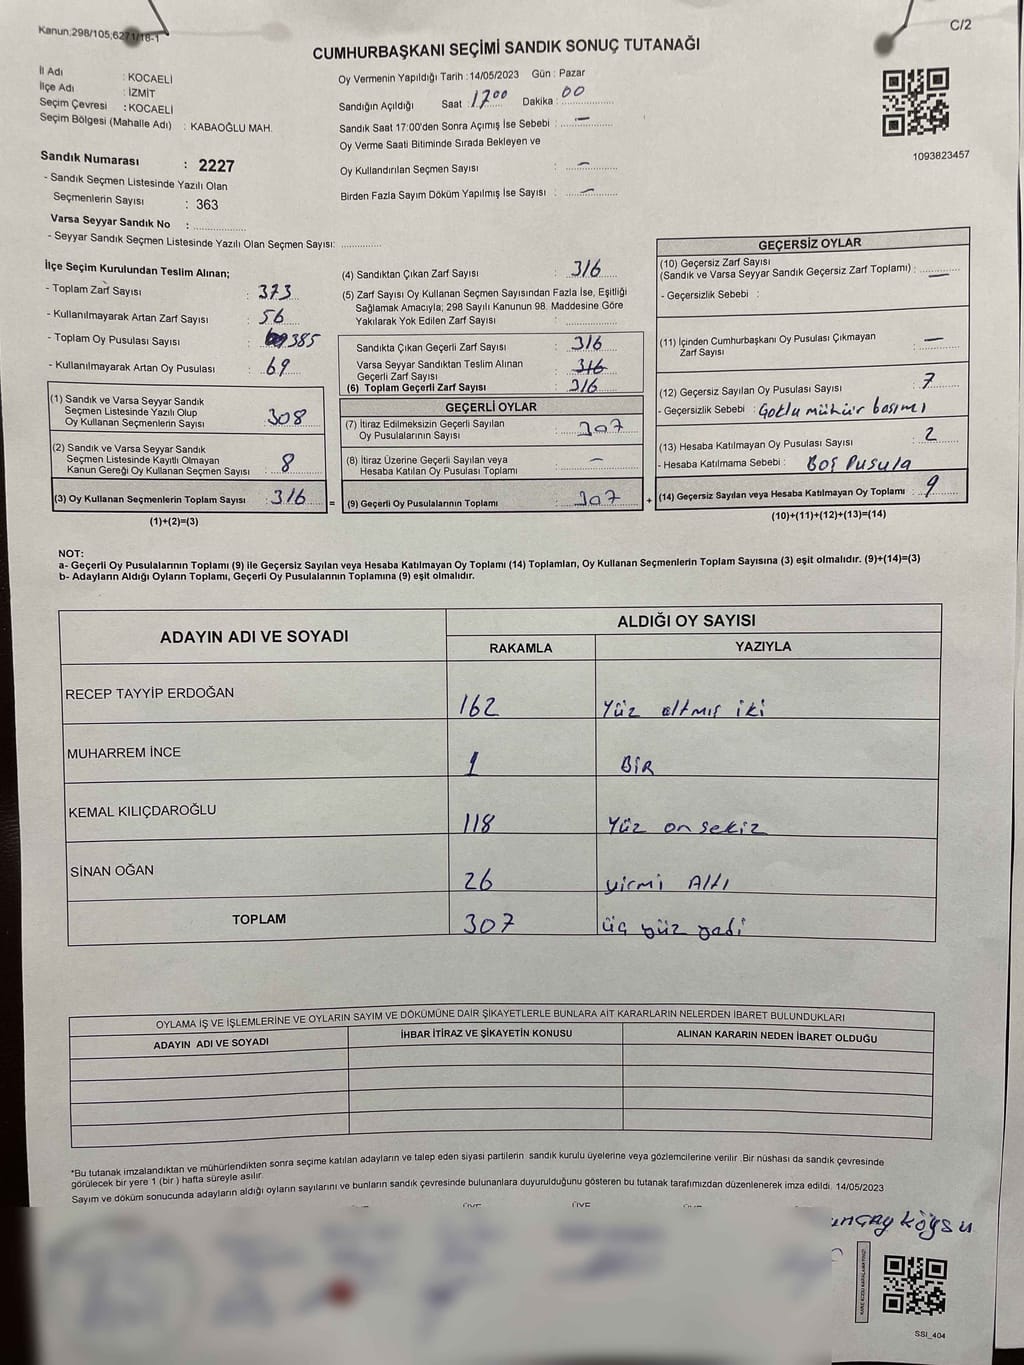 Kanun;298/105,6271/18-1
C/2
CUMHURBAŞKANI SEÇİMİ SANDIK SONUÇ TUTANAĞI
İl Adı : KOCAELİ
İlçe Adı : İZMİT
Seçim Çevresi : KOCAELİ
Seçim Bölgesi (Mahalle Adı) : KABAOĞLU MAH.
Sandık Numarası : 2227
- Sandık Seçmen Listesinde Yazılı Olan
Seçmenlerin Sayısı : 363
Varsa Seyyar Sandık No :
- Seyyar Sandık Seçmen Listesinde Yazılı Olan Seçmen Sayısı:
Oy Vermenin Yapıldığı Tarih : 14/05/2023 Gün : Pazar
Sandığın Açıldığı Saat : 17 00 Dakika : 00
Sandık Saat 17:00'den Sonra Açımış İse Sebebi : —
Oy Verme Saati Bitiminde Sırada Bekleyen ve
Oy Kullandırılan Seçmen Sayısı : —
Birden Fazla Sayım Döküm Yapılmış İse Sayısı : —
1093823457
İlçe Seçim Kurulundan Teslim Alınan;
- Toplam Zarf Sayısı : 373
- Kullanılmayarak Artan Zarf Sayısı : 56
- Toplam Oy Pusulası Sayısı : 385
- Kullanılmayarak Artan Oy Pusulası : 69
(1) Sandık ve Varsa Seyyar Sandık
Seçmen Listesinde Yazılı Olup
Oy Kullanan Seçmenlerin Sayısı : 308
(2) Sandık ve Varsa Seyyar Sandık
Seçmen Listesinde Kayıtlı Olmayan
Kanun Gereği Oy Kullanan Seçmen Sayısı : 8
(3) Oy Kullanan Seçmenlerin Toplam Sayısı : 316 =
(1)+(2)=(3)
(4) Sandıktan Çıkan Zarf Sayısı : 316
(5) Zarf Sayısı Oy Kullanan Seçmen Sayısından Fazla İse, Eşitliği
Sağlamak Amacıyla; 298 Sayılı Kanunun 98. Maddesine Göre
Yakılarak Yok Edilen Zarf Sayısı :
Sandıkta Çıkan Geçerli Zarf Sayısı : 316
Varsa Seyyar Sandıktan Teslim Alınan
Geçerli Zarf Sayısı : 316
(6) Toplam Geçerli Zarf Sayısı : 316
GEÇERLİ OYLAR
(7) İtiraz Edilmeksizin Geçerli Sayılan
Oy Pusulalarının Sayısı : 307
(8) İtiraz Üzerine Geçerli Sayılan veya
Hesaba Katılan Oy Pusulası Toplamı : —
(9) Geçerli Oy Pusulalarının Toplamı : 307 +
GEÇERSİZ OYLAR
(10) Geçersiz Zarf Sayısı
(Sandık ve Varsa Seyyar Sandık Geçersiz Zarf Toplamı) : —
- Geçersizlik Sebebi :
(11) İçinden Cumhurbaşkanı Oy Pusulası Çıkmayan
Zarf Sayısı : —
(12) Geçersiz Sayılan Oy Pusulası Sayısı : 7
- Geçersizlik Sebebi : Çoklu mühür basımı
(13) Hesaba Katılmayan Oy Pusulası Sayısı : 2
- Hesaba Katılmama Sebebi : Boş Pusula
(14) Geçersiz Sayılan veya Hesaba Katılmayan Oy Toplamı : 9
(10)+(11)+(12)+(13)=(14)
NOT:
a- Geçerli Oy Pusulalarının Toplamı (9) ile Geçersiz Sayılan veya Hesaba Katılmayan Oy Toplamı (14) Toplamları, Oy Kullanan Seçmenlerin Toplam Sayısına (3) eşit olmalıdır. (9)+(14)=(3)
b- Adayların Aldığı Oyların Toplamı, Geçerli Oy Pusulalarının Toplamına (9) eşit olmalıdır.
ADAYIN ADI VE SOYADI
ALDIĞI OY SAYISI
RAKAMLA YAZIYLA
RECEP TAYYİP ERDOĞAN 162 Yüz altmış iki
MUHARREM İNCE 1 BİR
KEMAL KILIÇDAROĞLU 118 Yüz on sekiz
SİNAN OĞAN 26 yirmi Altı
TOPLAM 307 üç yüz yedi
OYLAMA İŞ VE İŞLEMLERİNE VE OYLARIN SAYIM VE DÖKÜMÜNE DAİR ŞİKAYETLERLE BUNLARA AİT KARARLARIN NELERDEN İBARET BULUNDUKLARI
ADAYIN ADI VE SOYADI İHBAR İTİRAZ VE ŞİKAYETİN KONUSU ALINAN KARARIN NEDEN İBARET OLDUĞU
*Bu tutanak imzalandıktan ve mühürlendikten sonra seçime katılan adayların ve talep eden siyasi partilerin sandık kurulu üyelerine veya gözlemcilerine verilir .Bir nüshası da sandık çevresinde
görülecek bir yere 1 (bir ) hafta süreyle asılır.
Sayım ve döküm sonucunda adayların aldığı oyların sayılarını ve bunların sandık çevresinde bulunanlara duyurulduğunu gösteren bu tutanak tarafımızdan düzenlenerek imza edildi. 14/05/2023
Köysu
SSI_404